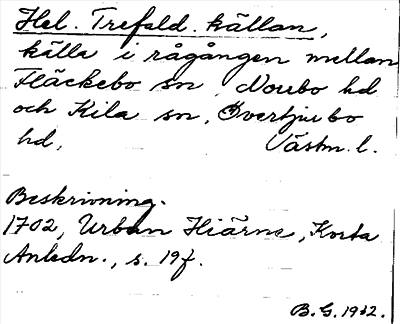 Hel. Trefald. källan,
källa i rågången mellan
Fläckebo sn, Norrbo hd
och Kila sn, Övertjurbo
hd, Västm. l.
Beskrivning.
1702, Urban Hiärne, Korta
Anledn., s. 19f.
B.G. 1932.